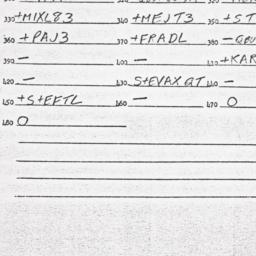 330 +MIXL83 340 +MEJT3 350 +ST
360 +PAJ3 370 +FRADL 380 -
390 - 400 - 410 +KAR
420 - 430 S+EVAXQT 440 -
450 +S+EFTL 460 - 470 0
480 0